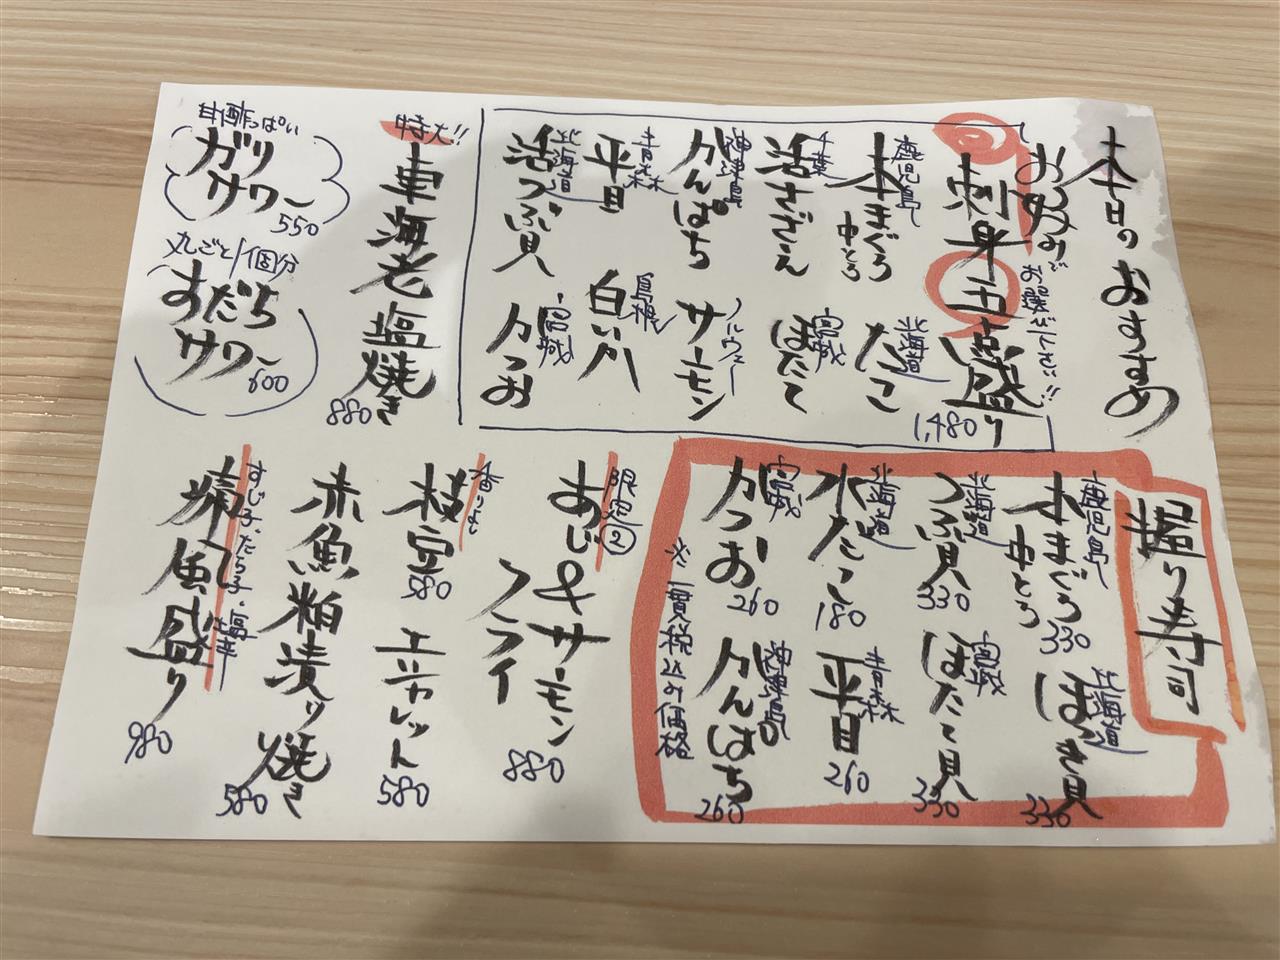 本日のおすすめ
お好みで
お選び下さい!!
刺身五点盛り
1,480
鹿児島
本まぐろ
中とろ
北海道
たこ
千葉
活さざえ
宮城
ほたて
神津島
かんぱち
ノルウェー
サーモン
青森
平目
島根
白いか
北海道
活つぶ貝
宮城
かつお
特大!!
車海老塩焼き
880
甘酢っぱい
ガリ
サワー
550
丸ごと1個分
すだち
サワー
600
握り寿司
鹿児島
本まぐろ
中とろ
330
北海道
ほっき貝
330
北海道
つぶ貝
330
宮城
ほたて貝
330
北海道
水だこ
180
青森
平目
260
宮城
かつお
260
神津島
かんぱち
260
※一貫税込み価格
限定②
あじ&サーモン
フライ
880
香りよき
枝豆
580
エシャレット
580
赤魚粕漬け焼き
580
すじ子・たら子・塩辛
痛風盛り
980